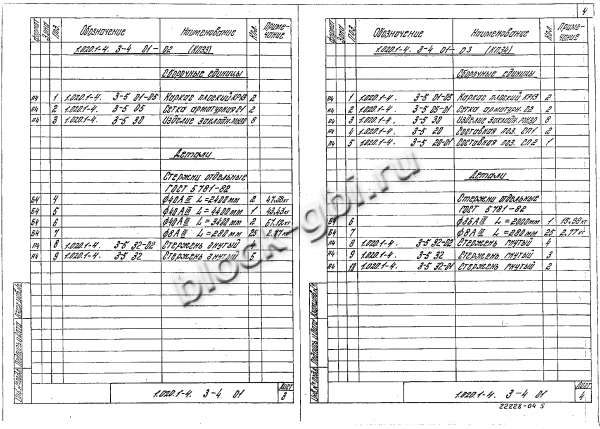 4
Формат Зона Поз. Обозначение Наименование Кол. Примечание
1.020.1-4. 3-4 01-02 (КП33)
Сборочные единицы
А4 1 1.020.1-4. 3-5 01-05 Каркас плоский КР13 2
А4 2 1.020.1-4. 3-5 05 Сетка арматурная С1 2
А4 3 1.020.1-4. 3-5 30 Изделие закладн. 8
Детали
Стержни отдельные
ГОСТ 5781-82
БЧ 4 ф40АIII L=2400мм 2
БЧ 5 ф40АIII L=4400мм 1
БЧ 6 ф40АIII L=3400мм 2
БЧ 7 ф8АIII L=280мм 25
А4 8 1.020.1-4. 3-5 32-02 Стержень гнутый
А4 9 1.020.1-4. 3-5 32 Стержень гнутый 6
1.020.1-4. 3-4 01
Лист
3
Формат Зона Поз. Обозначение Наименование Кол. Примечание
1.020.1-4. 3-4 01-03 (КП34)
Сборочные единицы
А4 1 1.020.1-4. 3-5 01-05 Каркас плоский КР13 2
А4 2 1.020.1-4. 3-5 05-01 Сетка арматурн. С2 2
А4 3 1.020.1-4. 3-5 30 Изделие закладн. 8
А4 4 1.020.1-4. 3-5 20 Составная поз. СП1 2
А4 5 1.020.1-4. 3-5 20-01 Составная поз. СП2 1
Детали
Стержни отдельные
ГОСТ 5781-82
БЧ 6 L=2800мм 1
БЧ 7 ф8АIII L=280мм 25 2.77кг
А4 8 1.020.1-4. 3-5 32-02 Стержень гнутый 4
А4 9 1.020.1-4. 3-5 32 Стержень гнутый 3
А4 10 1.020.1-4. 3-5 32-01 Стержень гнутый 2
1.020.1-4. 3-4 01
Лист
4
22228-04 5
block-gbi.ru